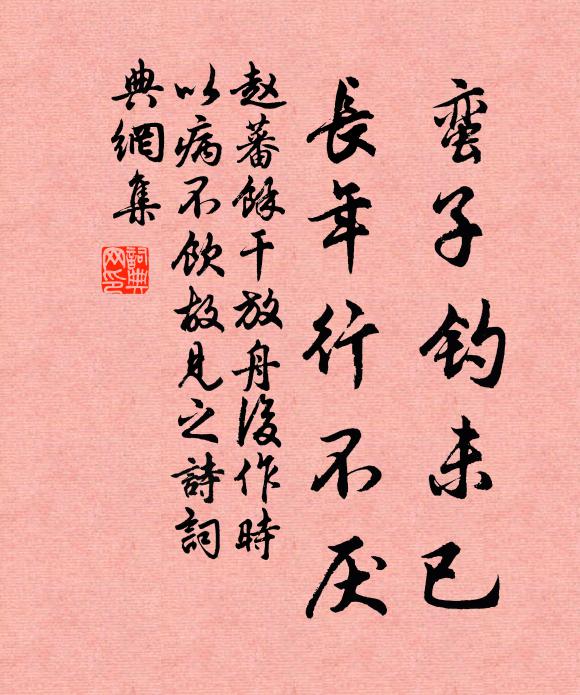 蛮子钓未已
長年行不厌
赵蕃餘干放舟後作時
以病不飲故見之詩詞
典網集
詞典
网印